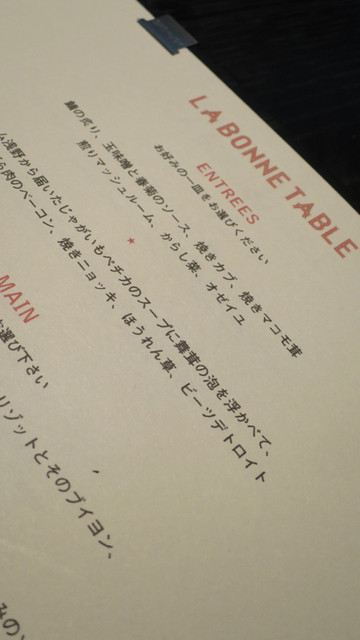 LA BONNE TABLE
ENTREES
お好みの一皿をお選びください
鰆の炙り、玉味噌と春菊のソース、焼きカブ、焼きマコモ茸
煎りマッシュルーム、からし菜、オゼイユ
浅野から届いたじゃがいもベチカのスープに舞茸の泡を浮かべて、
肉のベーコン、焼きニョッキ、ほうれん草、ビーツデトロイト
MAIN
お選び下さい
リゾットとそのブイヨン、
みの、